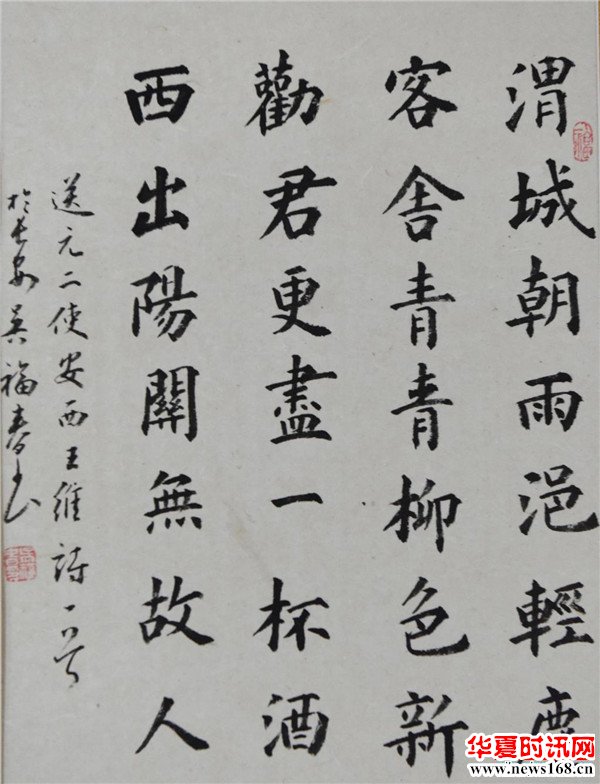 渭城朝雨浥輕塵
客舍青青柳色新
勸君更盡一杯酒
西出陽關無故人
送元二使安西王維詩一首
於長安吴福春书
华夏时讯网
www.news168.cn